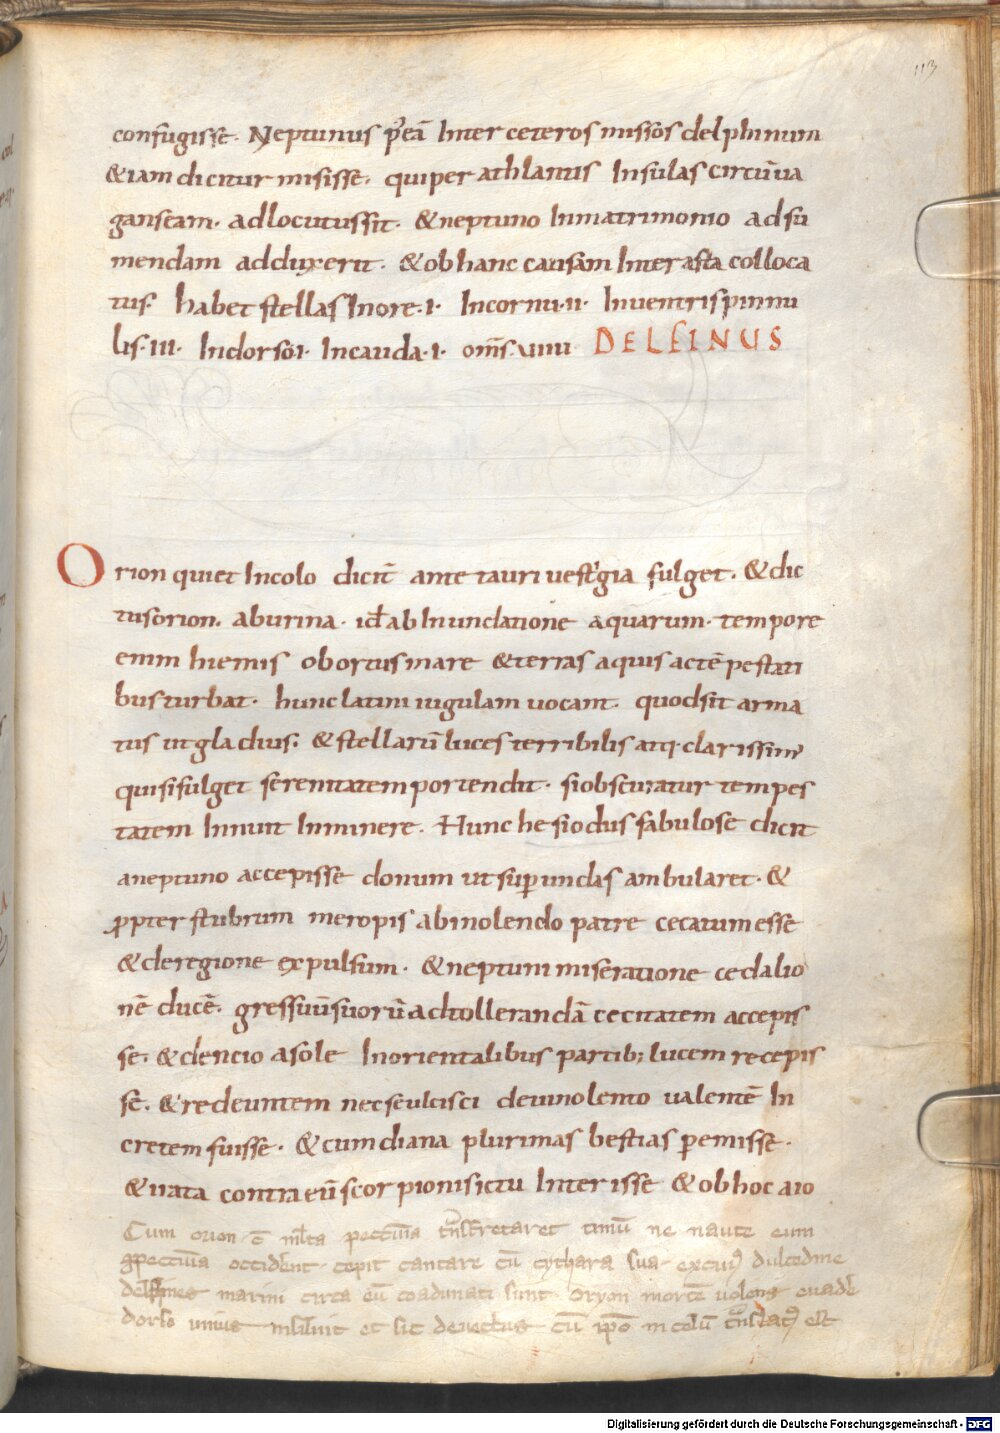 113
confugisse. Neptunus p̄eā Inter ceteros missos delphinum
& iam dicitur misisse. qui per athlantis Insulas circūua
gans eam. adlocutus sit. & neptuno Inmatrimonio adsu
mendam adduxerit. & ob hanc causam Inter astra colloca
tus. habet stellas Inore .I. Incornu .II. Inuentris pinnu
lis .III. Indorso .I. Incauda .I. om̄s. VIIII DELFINUS
Orion qui et Incolo dicit̄ ante tauri uestigia fulget. & dic
tus orion. ab urina. id ab Inundatione aquarum. tempore
enim hiemis obortus mare & terras aquis ac tē pestati
bus turbat. hunc latini iugulam uocant. quod sit arma
tus ut gladius. & stellarū luces terribilis atq. clarissim
qui si fulget serenitatem portendit. si obscuratur tempes
tatem Innuit Inminere. Hunc hesiodus fabulose dicit
a neptuno accepisse donum ut sup undas ambularet. &
ppter stubrum meropis ab inolendo patre cecatum esse
& de regione expulsum. & neptuni miseratione cedalio
nē ducē. gressuū suorū ad tollerandā cecitatem accepis
se. & dencio a sole In orientalibus partib; lucem recepis
se. & redeuntem nec se ulcisci de uinolento ualentē In
cretem fuisse. & cum diana plurimas bestias pemisse.
& irata contra eū scorpionis ictu Interisse & ob hoc a io
Cum orion c̄ mlta peccunia tnsfretaret timuit ne naute eum
p peccunia occident. cepit cantare cū cythara sua. ex cui dulcedine
delfines marini circa eū coadunati sunt. oryon mortē uolens euade
dorso unius insiliuit et sic deuectus cū ipo in celū tnslat est
Digitalisierung gefördert durch die Deutsche Forschungsgemeinschaft - DFG